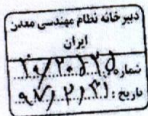 دبیرخانه نظام مهندسی معدن
ایران
شماره:
تاریخ: ۹۷/۲/۳۱